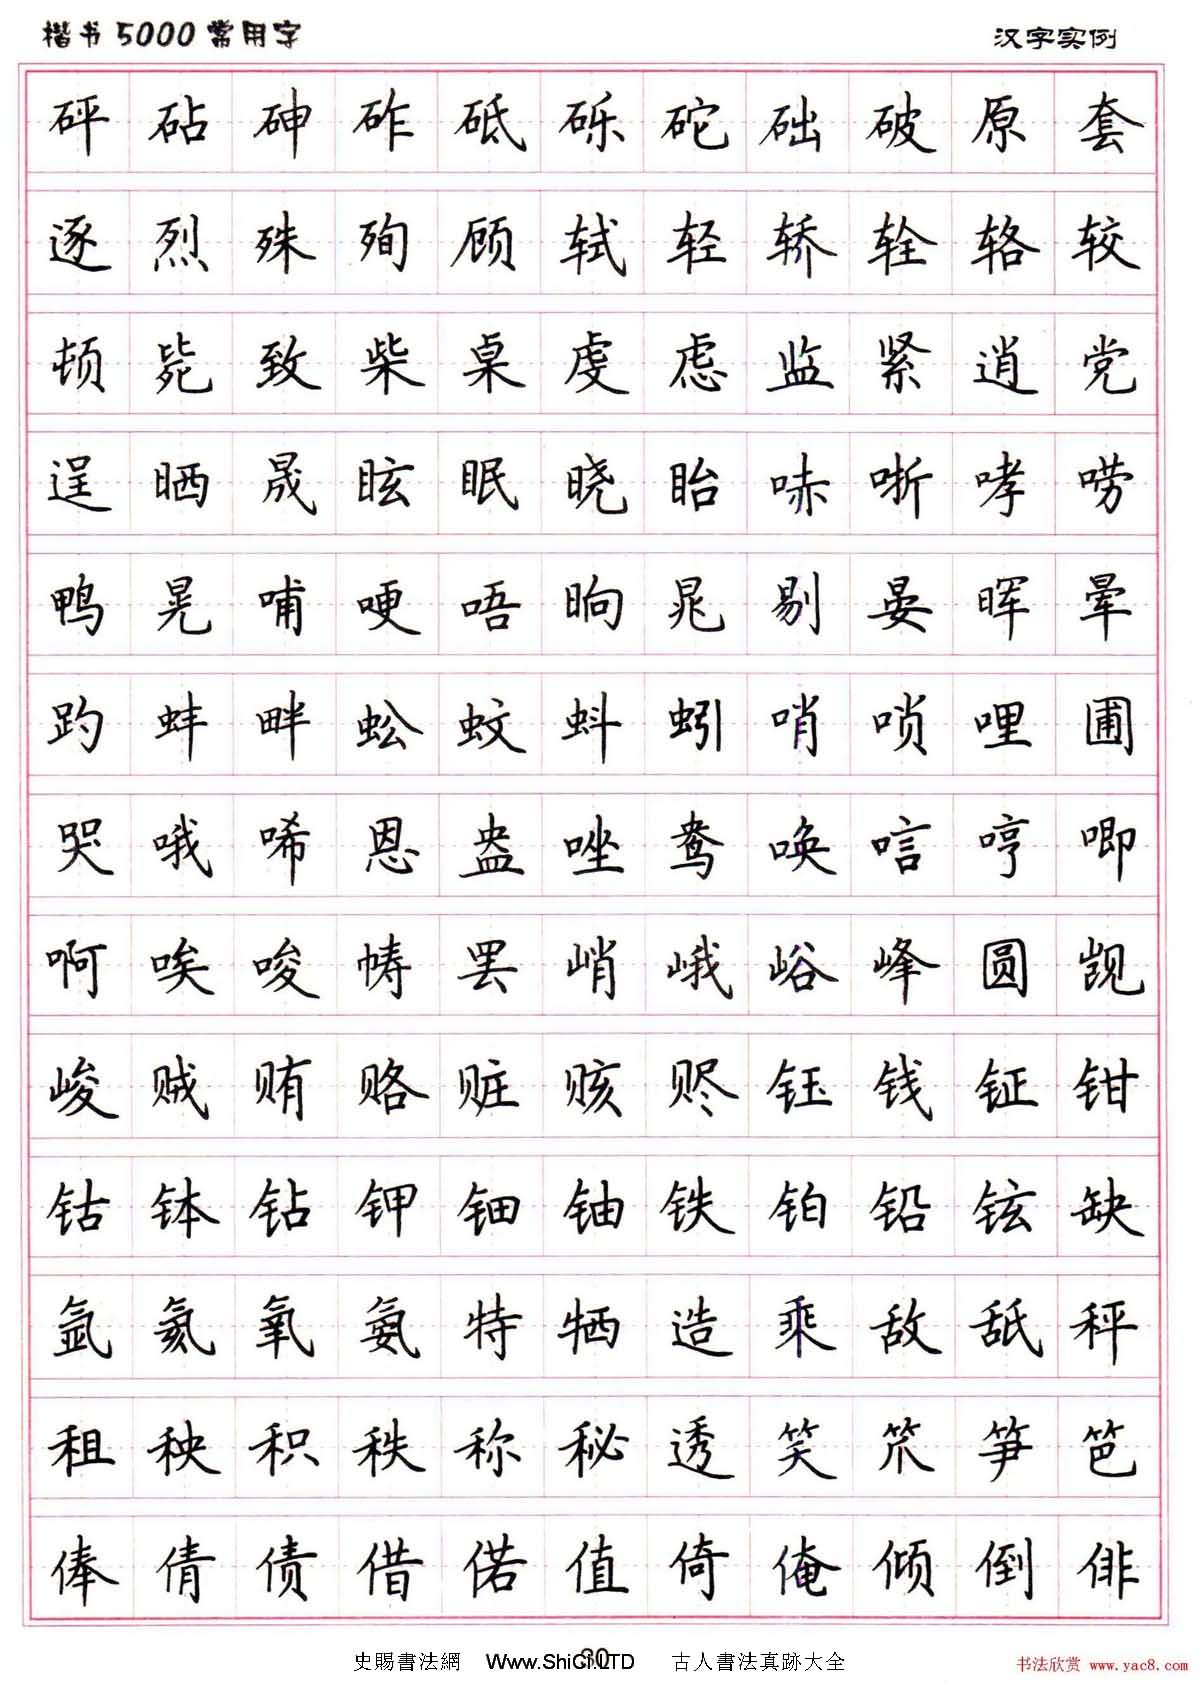 楷书5000常用字 汉字实例
砰 砧 砷 砟 砥 砾 砣 础 破 原 套
逐 烈 殊 殉 顾 轼 轻 轿 辁 辂 较
顿 毙 致 柴 桌 虔 虑 监 紧 逍 党
逞 晒 晟 眩 眠 晓 眙 哧 哳 哮 唠
鸭 晃 哺 哽 唔 晌 晁 剔 晏 晖 晕
趵 蚌 畔 蚣 蚊 蚪 蚓 哨 唢 哩 圃
哭 哦 唏 恩 盎 唑 鸯 唤 唁 哼 唧
啊 唉 唆 帱 罢 峭 峨 峪 峰 圆 觊
峻 贼 贿 赂 赃 赅 赆 钰 钱 钲 钳
钴 钵 钻 钾 钿 铀 铁 铂 铅 铉 缺
氩 氦 氧 氨 特 牺 造 乘 敌 舐 秤
租 秧 积 秩 称 秘 透 笑 笊 笋 笆
俸 倩 债 借 偌 值 倚 俺 倾 倒 俳
30
史賜書法網 Www.ShiCi.LTD 古人書法真跡大全
书法欣赏 www.yac8.com